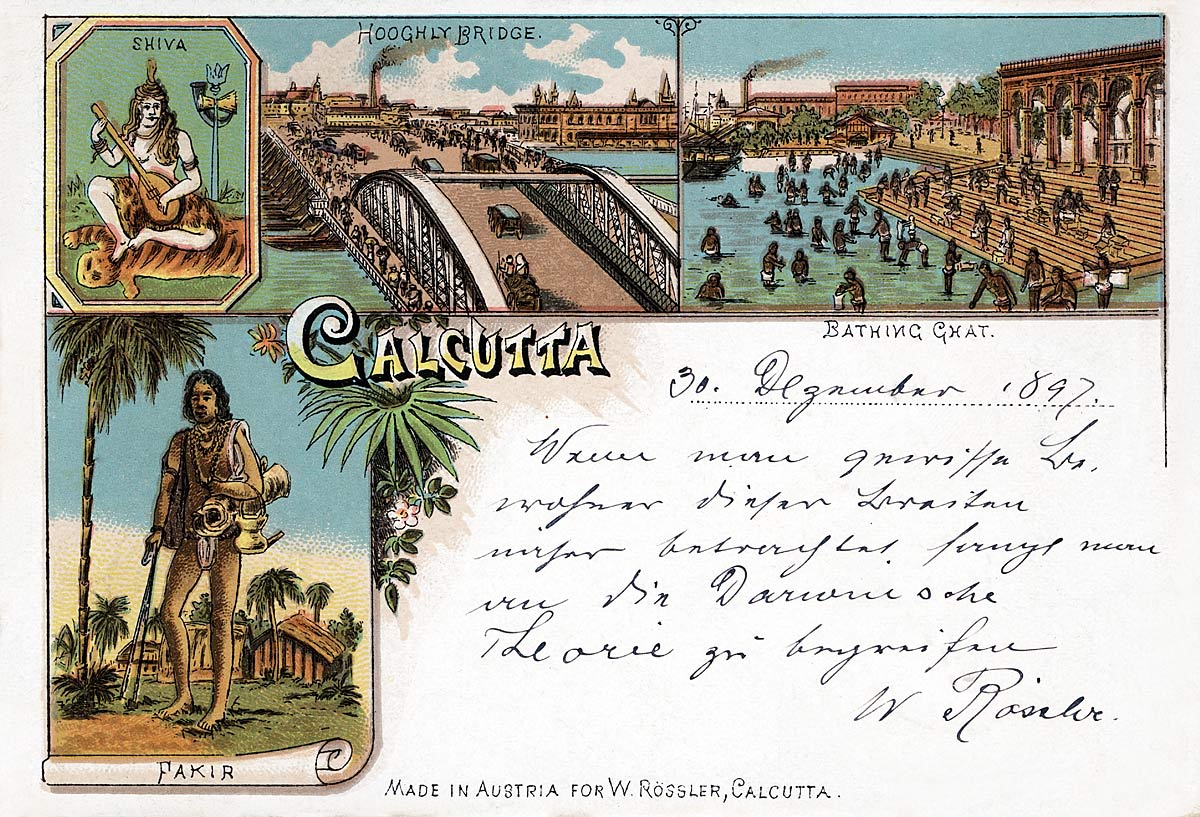 SHIVA
HOOGHLY BRIDGE.
BATHING GHAT.
CALCUTTA
30. Dezember 1897.
Wenn man gewisse Be-
wohner dieser Breiten
näher betrachtet fängt man
an die Darwinische
Theorie zu begreifen
W Rössler.
FAKIR
MADE IN AUSTRIA FOR W. RÖSSLER, CALCUTTA.